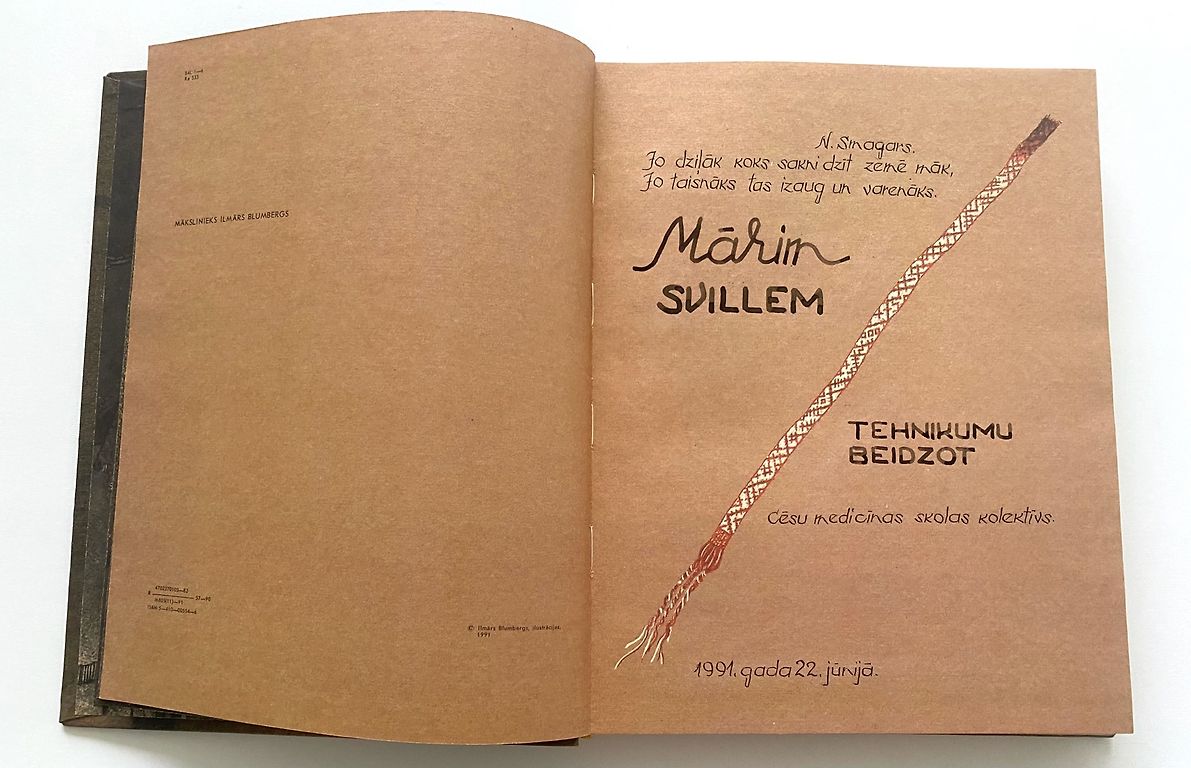 84L 1—6
Ra 533
MĀKSLINIEKS ILMĀRS BLUMBERGS
57—90
ISBN 5—410—00554—6
© Ilmārs Blumbergs, ilustrācijas,
1991
N. Smagars.
Jo dziļāk koks sakni dzīt zemē māk,
Jo taisnāks tas izaug un varenāks.
Mārim
SVILLEM
TEHNIKUMU
BEIDZOT
Cēsu medicīnas skolas kolektīvs.
1991. gada 22. jūnijā.